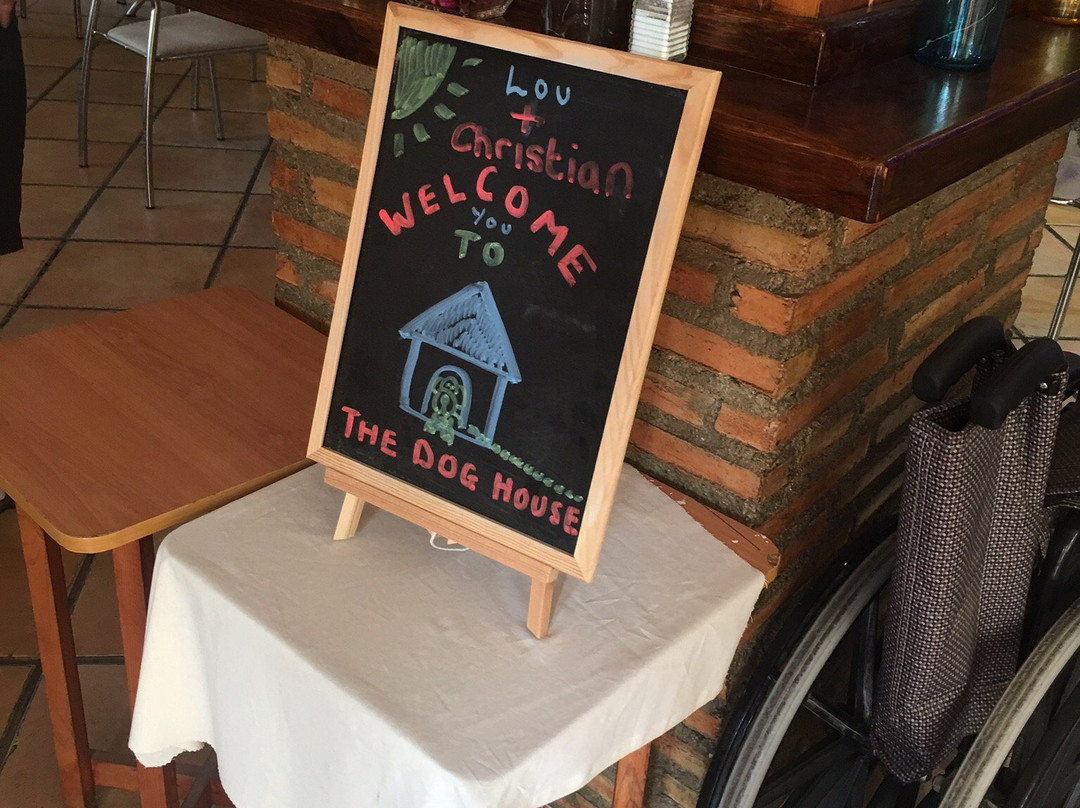 LOU
+
Christian
WELCOME
YOU
TO
THE DOG HOUSE